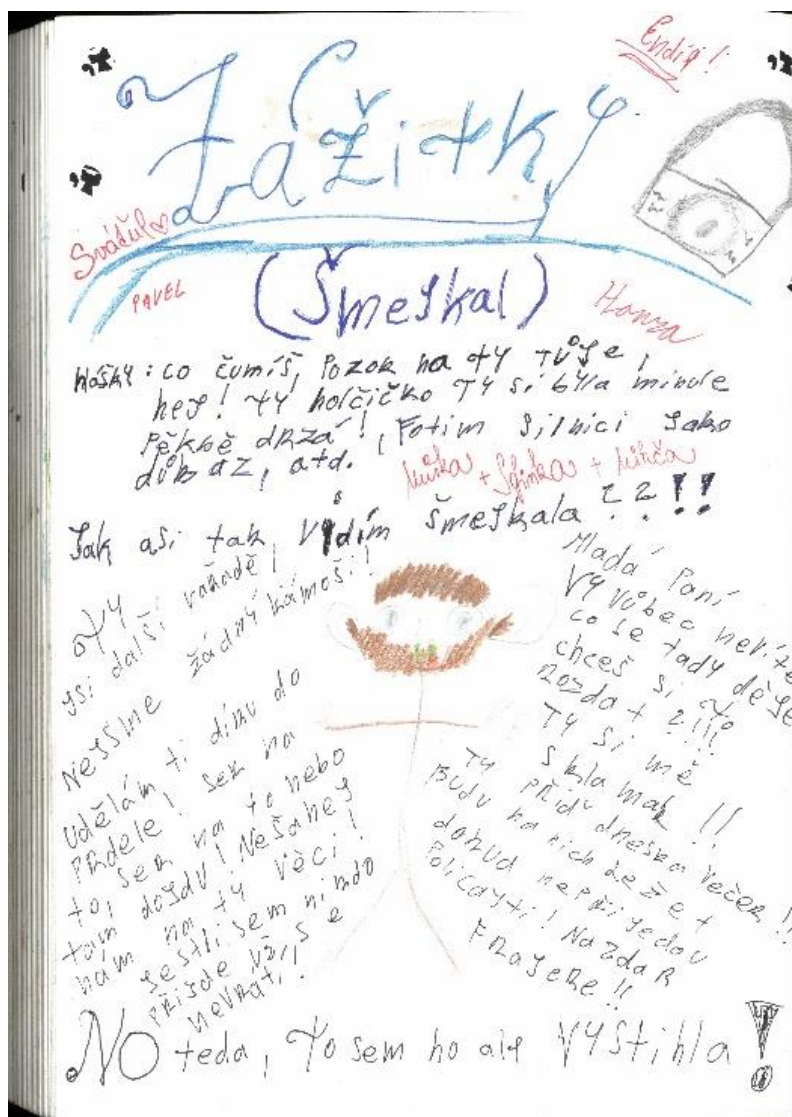 Endiá!
Zážitky
Svášul
PAVEL
(Šmejkal)
Honza
Hošky: co čumíš, Pozor na ty tůje,
hej! ty holčičko Ty si byla minule
Pěkbě drzá!, Fotim silnici Jako
důkaz, atd.
+ Sfinka +
Jak asi tak vidím Šmejkala ??!!
Ty
jsi další vařadě!
Nejsme žádný kámoši!
Udělám ti dímu do
Prdele! Sem na
to, sem na to nebo
tam dojdu! Nešahej
nám na ty věci!
Jestli sem nimdo
Přijde vžise
nevrátí!
Mladá Paní
Vy vůbec nevíte
co se tady děje
chceš si to
rozdat ?!!!
Ty si mě
sklamak !!
Ty přiď dneska večer !!
Budu na nich ležet
dokud nepřijedou
Policayti! Nazdar
Frajere !!
No teda, To sem ho aly Vystihla!